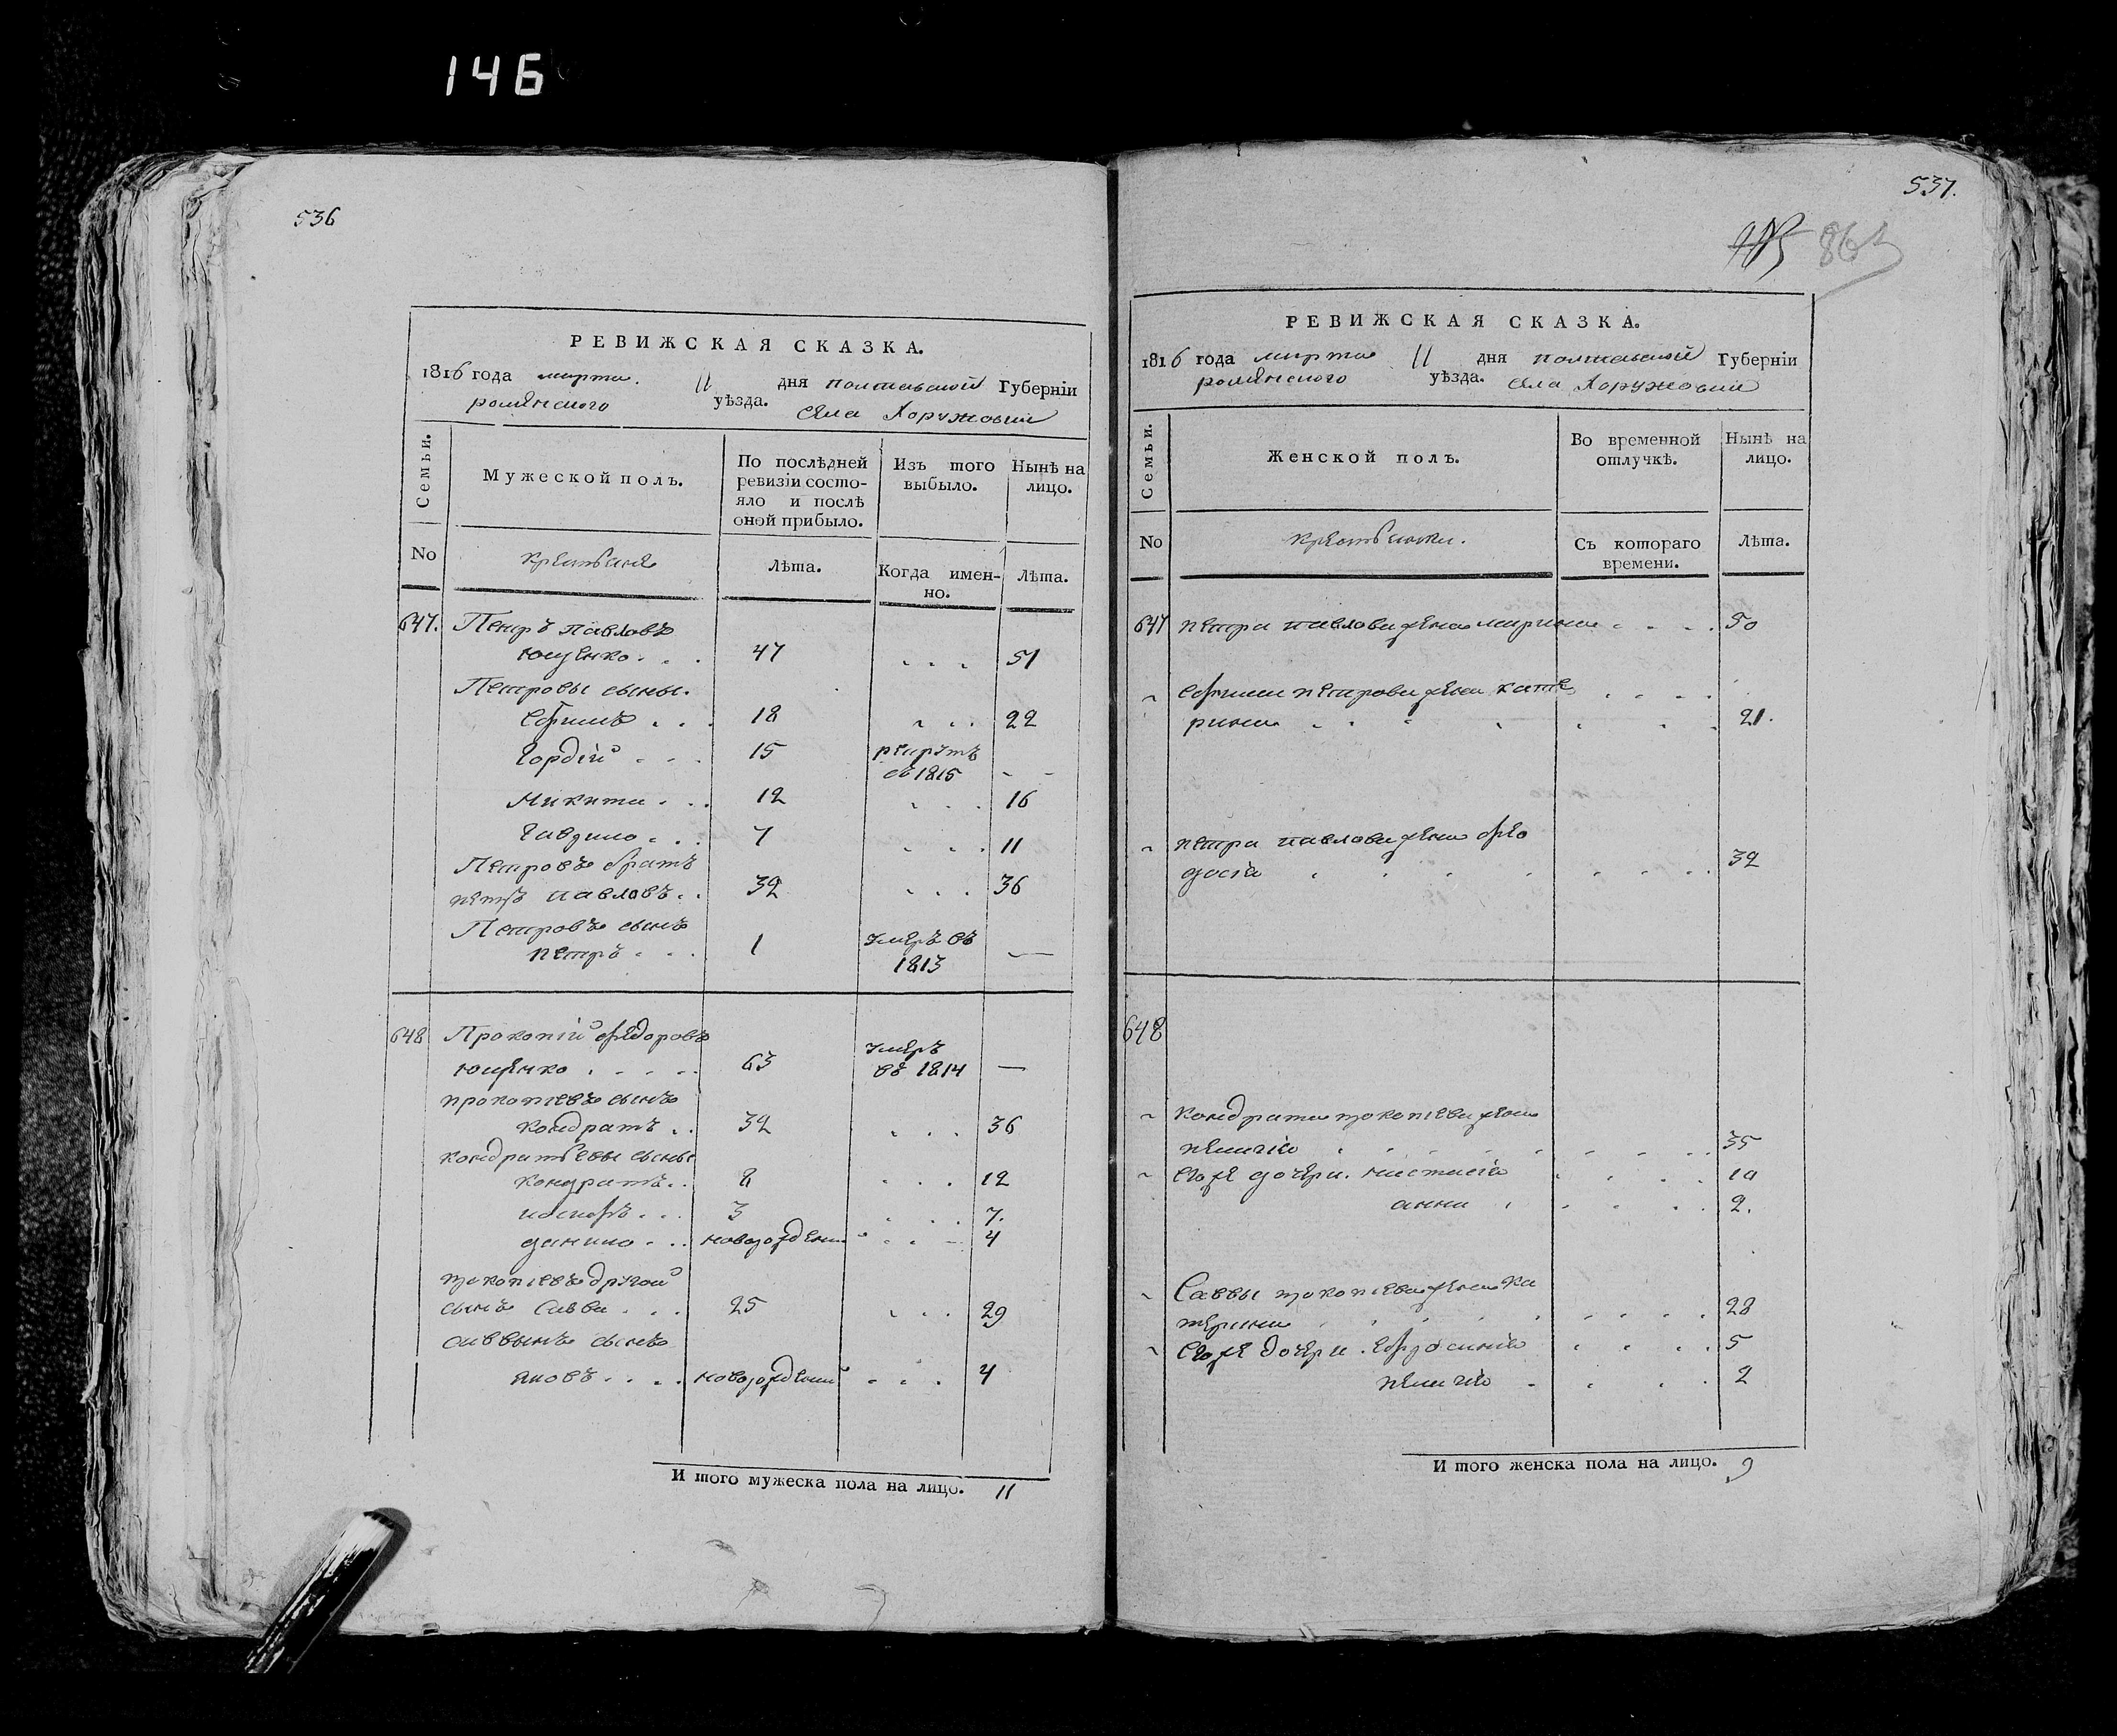 146
536
РЕВИЖСКАЯ СКАЗКА.
1816 года марта 11 дня полтавской Губерніи
роменского уѣзда. села Хоружовки
Семьи.
Мужеской полъ.
По послѣдней ревизіи состо-
яло и послѣ
оной прибыло.
Изъ того
выбыло.
Нынѣ на
лицо.
No
крестьяне
Лѣта.
Когда имен-
но.
Лѣта.
647. Петръ павловъ
ющенко . . . 47 . . . 51
Петровы сыны.
Ефимъ . . . 18 . . . 22
Гордій . . . 15 рекрутъ
въ 1815 - -
Микита . . . 12 . . . 16
Гаврило . . . 7 . . . 11
Петровъ братъ
петръ павловъ . . 32 . . . 36
Петровъ сынъ
петръ . . . 1 умеръ въ —
1813
648 Прокопій федоровъ
ющенко . . . . . 63 умеръ
въ 1814 —
прокопіевъ сынъ
кондратъ . . 32 . . . 36
кондратьевы сыны
кондратъ . . 8 . . . 12
иосифъ . . . 3 . . . 7.
данило . . . новорожден . . . 4
прокопіевъ другой
сынъ савва . . . 25 . . . 29
саввынъ сынъ
яковъ . . . . новорожденій . . . 4
И того мужеска пола на лицо. 11
537.
865
РЕВИЖСКАЯ СКАЗКА.
1816 года марта 11 дня полтавской Губерніи
роменского уѣзда. села Хоружовки
Семьи.
Женской полъ.
Во временной
отлучкѣ.
Нынѣ на
лицо.
No
крестьянки.
Съ котораго
времени.
Лѣта.
647 петра павлова жена марина . . . . 50
ефима петрова жена кате
рина . . . . . . . 21.
петра павлова жена фео
досія . . . . . . . 32
648
кондрата прокопіева жена
пелагія . . . . . . . 35
его же дочери. настасія . . . . 10
анна . . . . . 2.
Саввы прокопіева жена ка
терина . . . . . . . 28
его же дочери. ефросинія . . . . 5
пелагія . . . . 2
И того женска пола на лицо. 9